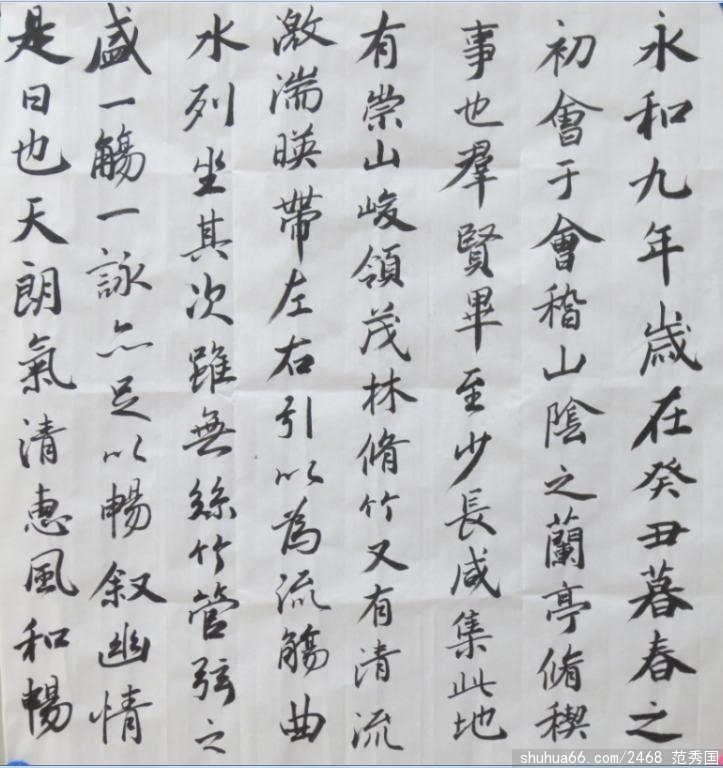 永和九年歲在癸丑暮春之
初會于會稽山陰之蘭亭脩稧
事也羣賢畢至少長咸集此地
有崇山峻領茂林脩竹又有清流
激湍暎帶左右引以為流觴曲
水列坐其次雖無絲竹管弦之
盛一觴一詠亦足以暢叙幽情
是日也天朗氣清惠風和暢
shuhua66.com/2468 范秀国